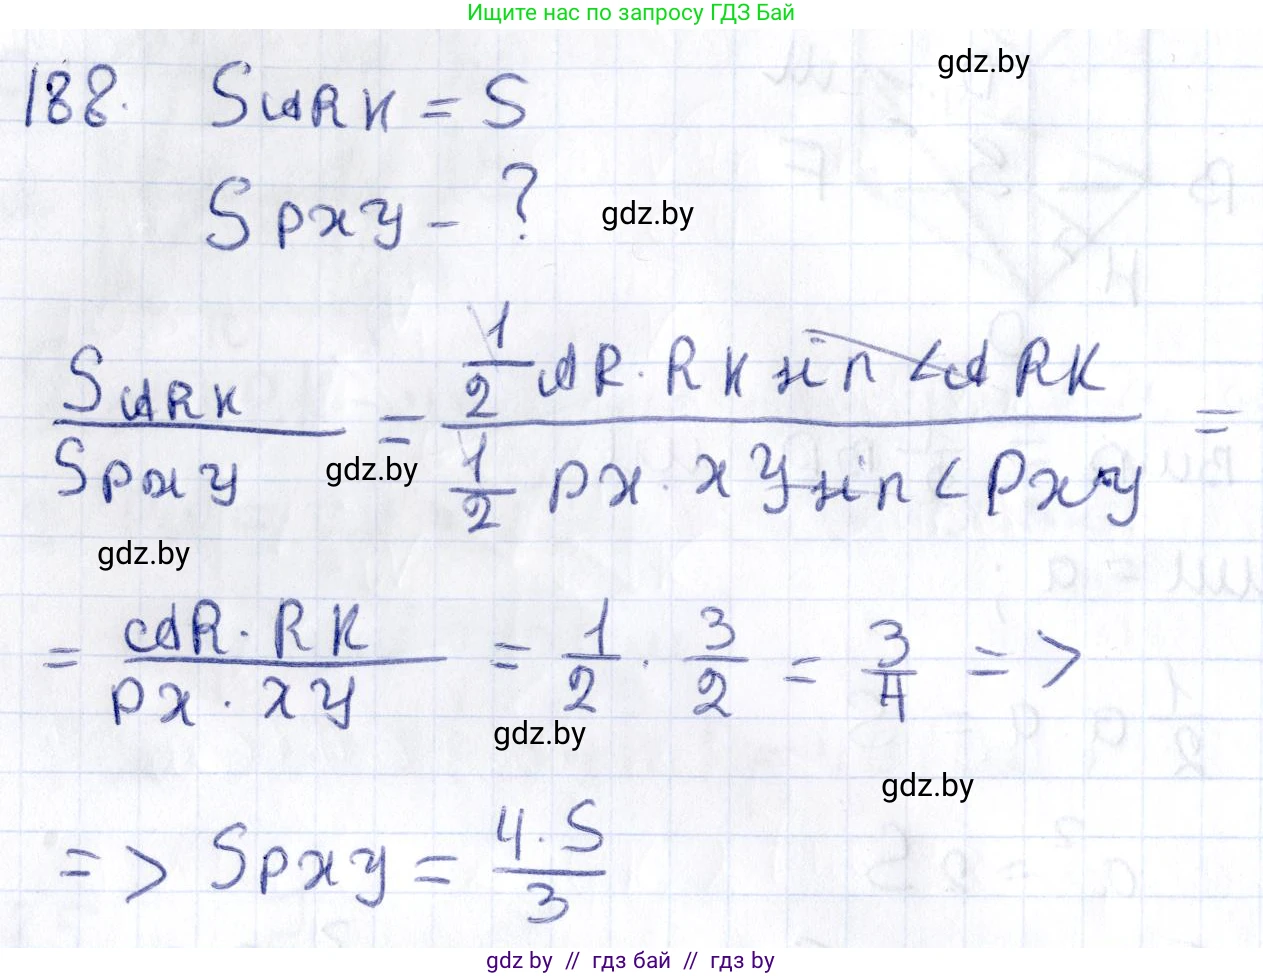 Ищите нас по запросу ГДЗ Бай
gdz.by
188. S ARK = S
S PXY - ?
gdz.by
S ARK / S PXY = 1/2 AR · RK sin <ARK / 1/2 PX · XY sin <PXY =
gdz.by
gdz.by
= AR · RK / PX · XY = 1/2 · 3/2 = 3/4 =>
gdz.by
gdz.by
=> S PXY = 4 · S / 3
gdz.by // гдз бай // гдз by